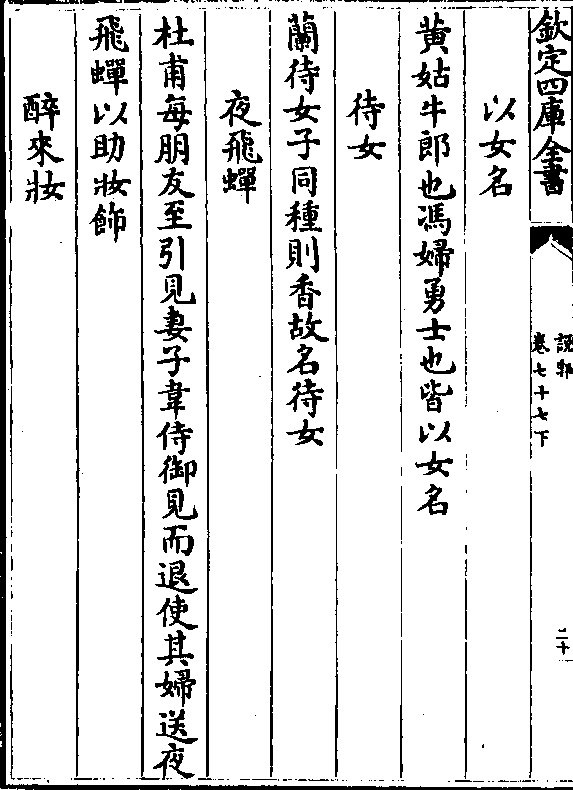 欽定四庫全書
說郛
卷七十七下
二十
以女名
黄姑牛郎也馮婦勇士也皆以女名
待女
蘭待女子同種則香故名待女
夜飛蟬
杜甫每朋友至引見妻子韋侍御見而退使其婦送夜
飛蟬以助妝飾
醉來妝